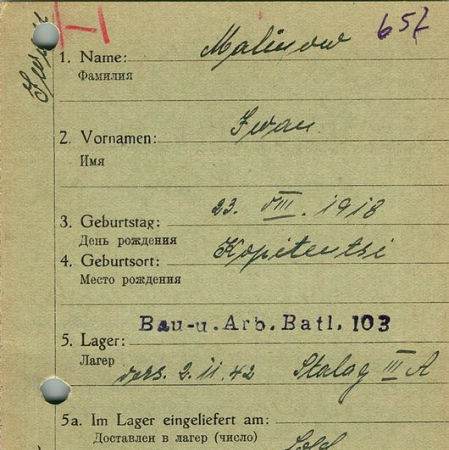 H
657
1. Name: Malinow
Фамилия
2. Vornamen: Iwan
Имя
3. Geburtstag: 23. VIII. 1918
День рождения
4. Geburtsort: Kopitentsi
Место рождения
Bau-u. Arb. Batl. 103
5. Lager:
Лагер
vers. 2.11.42 Stalag III A
5a. Im Lager eingeliefert am:
Доставлен в лагер (число)